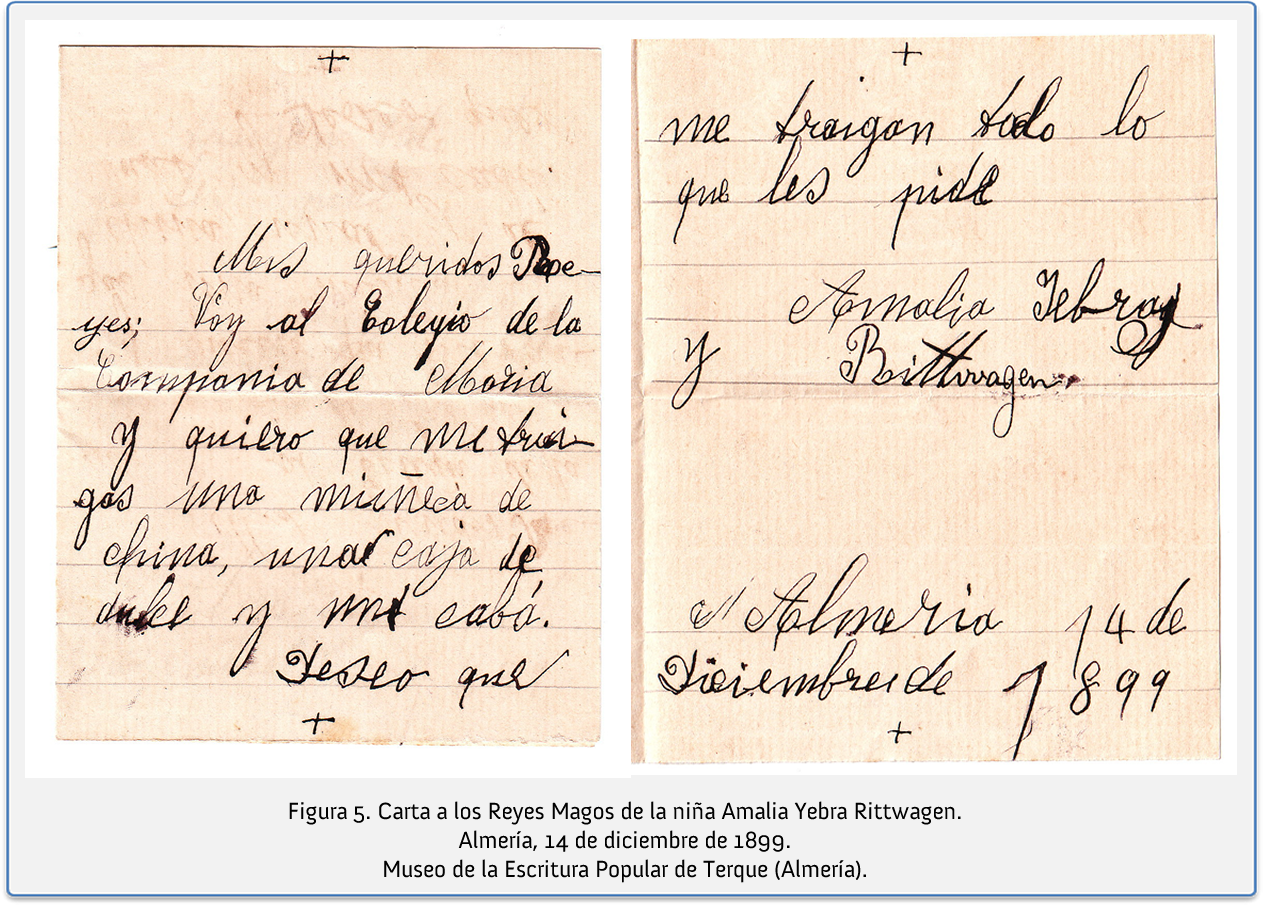 +
Mis queridos Re-
yes; Voy al Colegio de la
Compania de Maria
y quiero que me trai-
gas una muñeca de
china, una caja de
dulce y una cabá.
Deseo que
+
+
me traigan todo lo
que les pide
Amalia Yebra
y Rittwagen.
Almeria 14 de
Diciembre de 1899
+
Figura 5. Carta a los Reyes Magos de la niña Amalia Yebra Rittwagen.
Almería, 14 de diciembre de 1899.
Museo de la Escritura Popular de Terque (Almería).